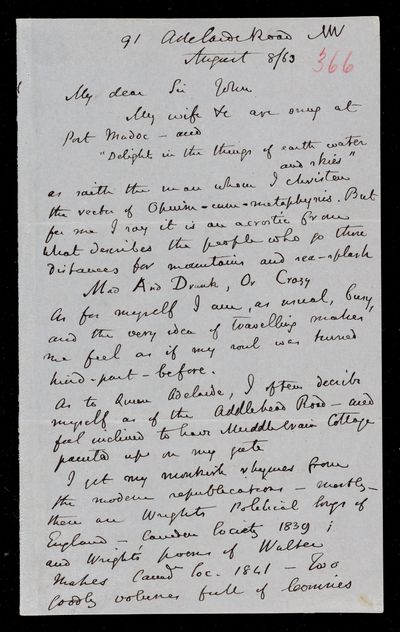 91 Adelaide Road NW
August 8/63
366
My dear Sir John
My wife &c are away at
Port Madoc – and
"Delight in the things of earth water
and skies"
as saith the man whom I christen
the vector of Opium-cum-metaphysics. But
for me I say it is an acrostic from
what describes the people who go those
distances for mountains and sea-splash
Mad And Drunk, Or Crazy
As for myself I am, as usual, busy,
and the very idea of travelling makes
me feel as if my soul was turned
hind-part-before.
As to Queen Adelaide, I often describe
myself as of the Addlehead Road – and
feel inclined to have Muddlebrain Cottage
painted up on my gate
I get my monkish rhymes from
the modern republications – mostly –
there are Wright's Political Songs of
England – Camden Society 1839;
and Wright's poems of Walter
Mapes Camdn Soc. 1841 – Two
goodly volumes full of